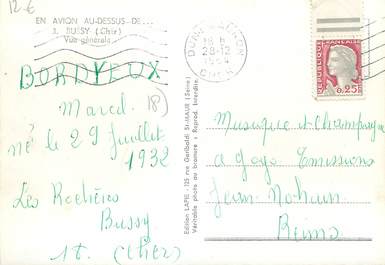 12-E
EN AVION AU-DESSUS DE...
3. BUSSY (Cher)
Vue générale
BORDYEUX
Marcel (18)
né le 29 juillet
1932
Les Rochères
Bussy
18. (Cher)
Edition LAPIE - 125 rue Garibaldi St-MAUR (Seine)
Véritable photo au bromure - Reprod. Interdite.
28-12
CHER
REPUBLIQUE FRANÇAISE
0,25
POSTES
Musique et champagne
a gogo Emissions
Jean Nohain
Reims